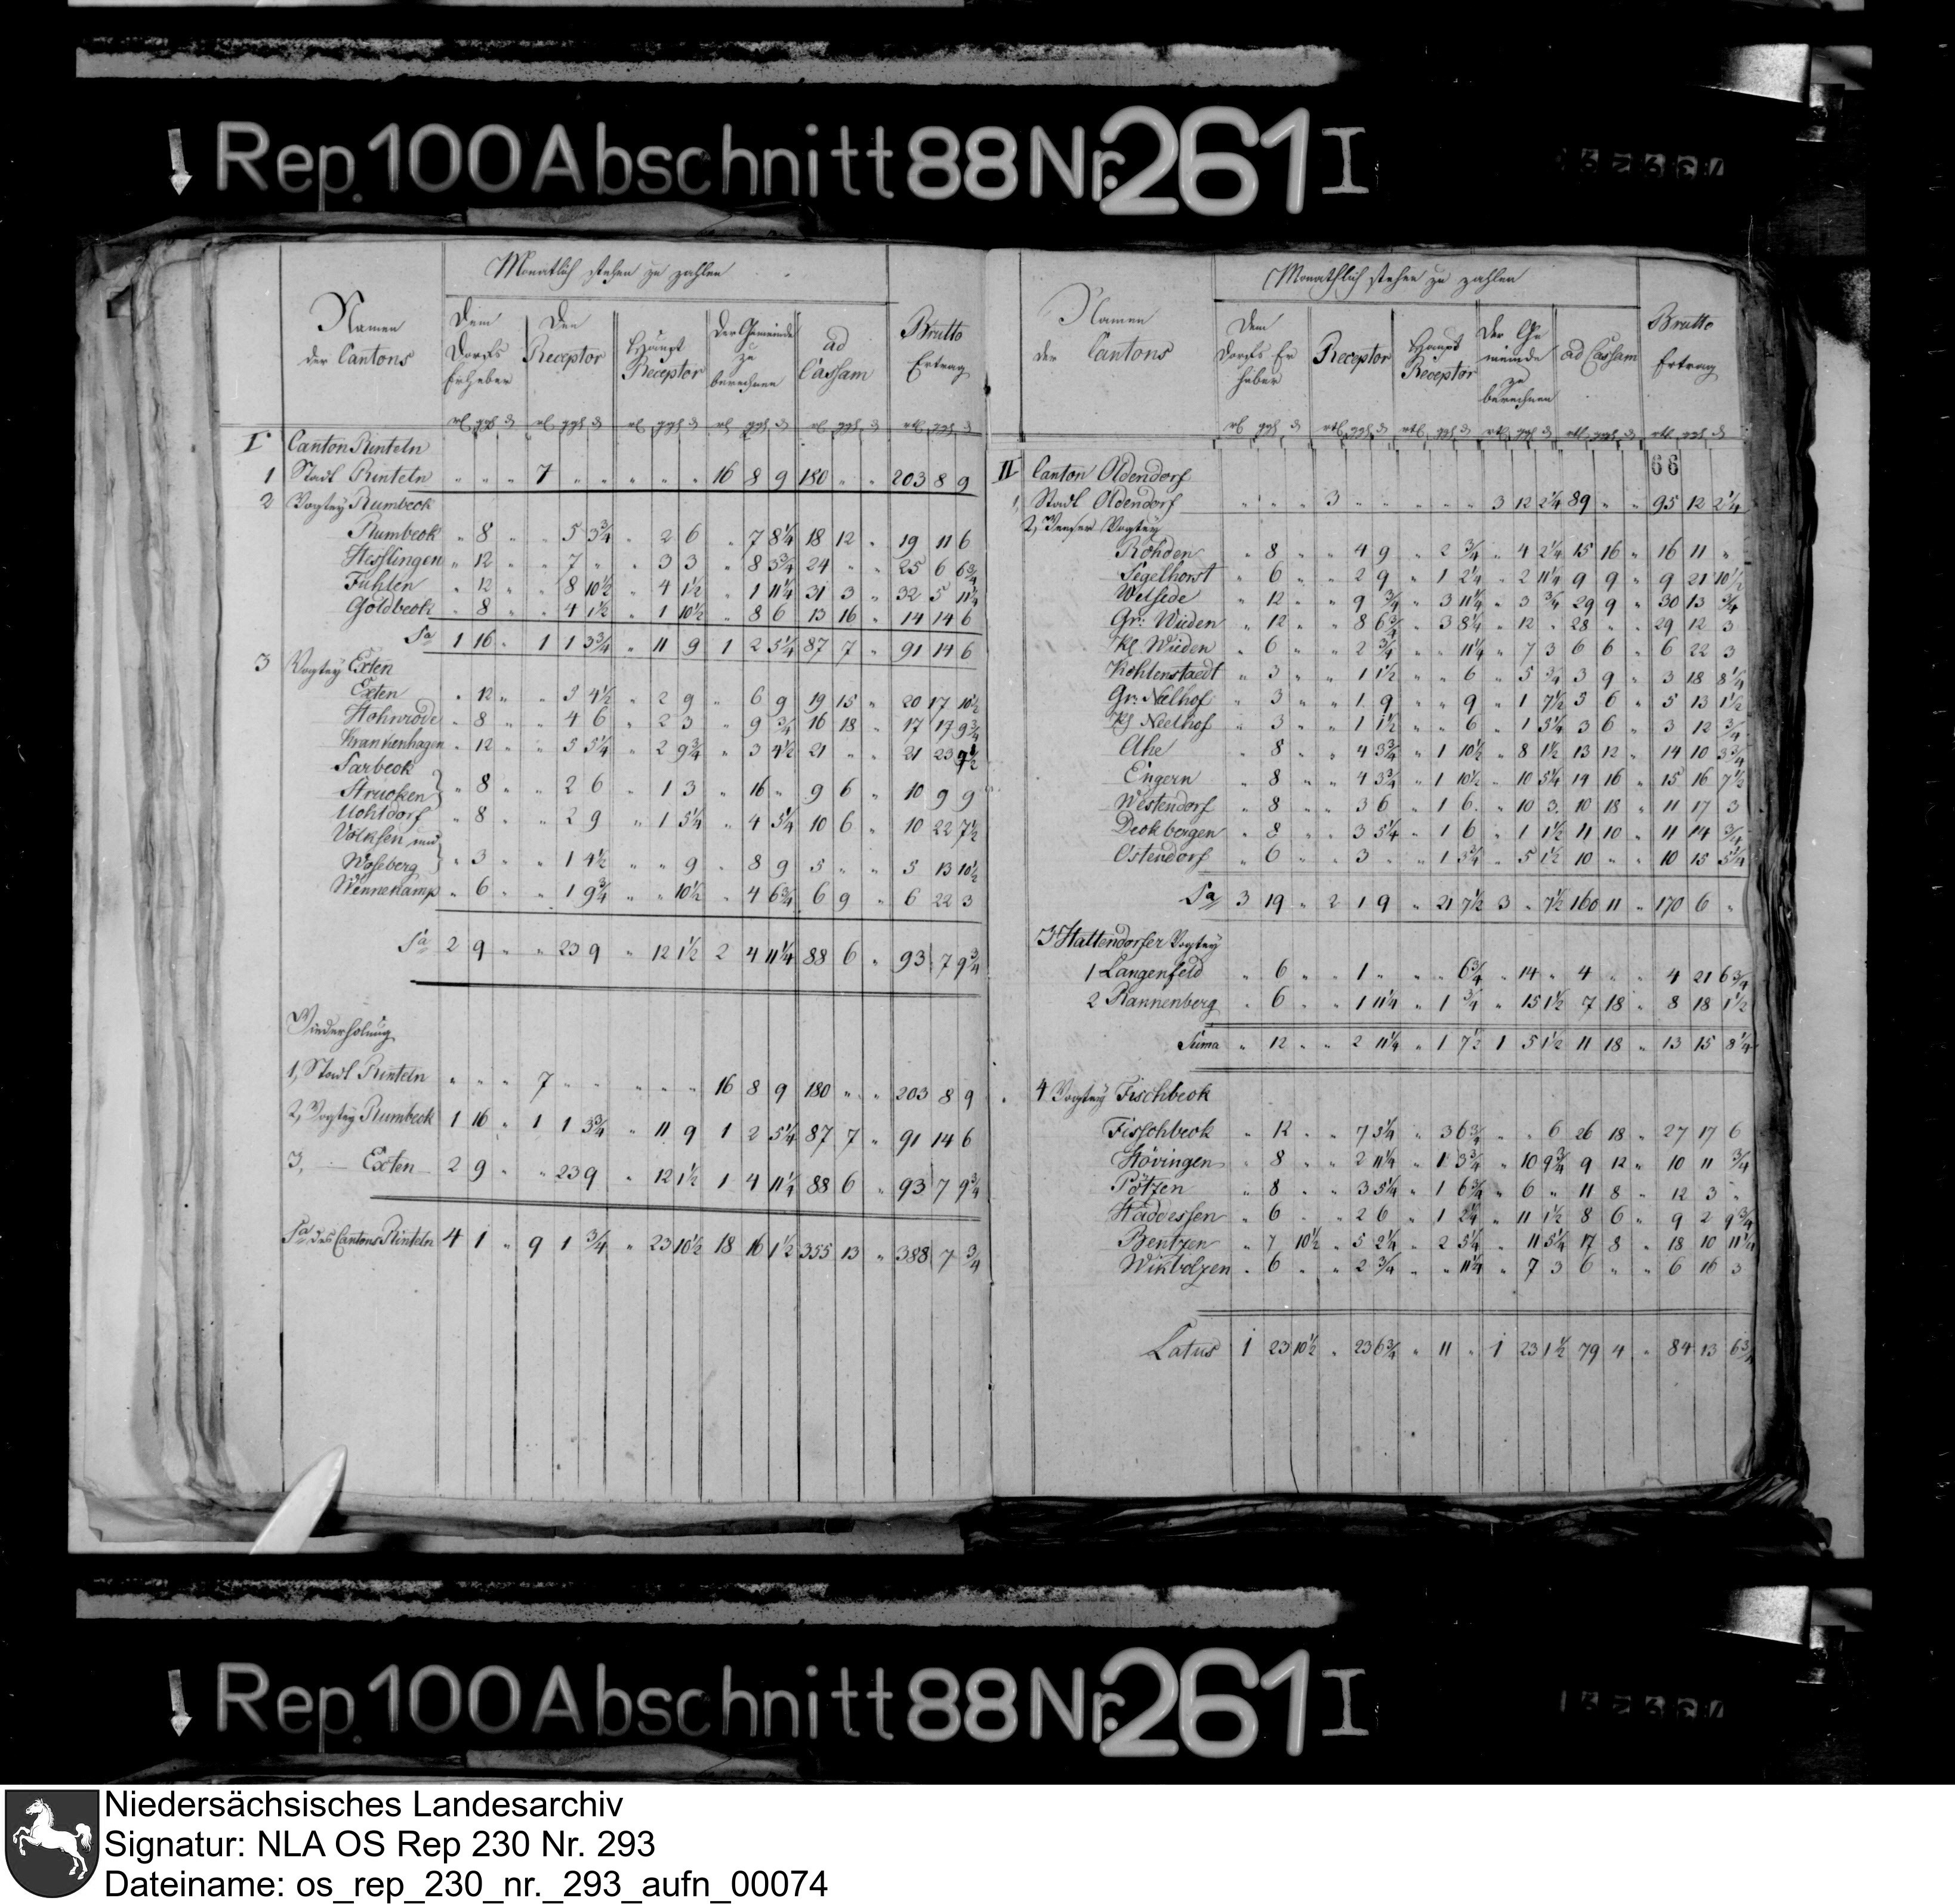 Rep. 100 Abschnitt 88 Nr. 261 I
Monatlich stehen zu zahlen
Namen der Cantons
Dem Dorfs Erheber
Den Receptor
Haupt Receptor
Der Gemeinde zu berechnen
ad Cassam
Brutto Ertrag
I Canton Rinteln
1 Stadt Rinteln " " " 7 " " " " " 16 8 9 180 " " 203 8 9
2 Vogtey Rumbeck
Rumbeck " 8 " " 5 3¾ " 2 6 " 7 8¼ 18 12 " 19 11 6
Hesslingen " 12 " " 7 " " 3 3 " 8 3¾ 24 " " 25 6 6¾
Fuhlen " 12 " " 8 10½ " 4 1½ " 1 11¼ 31 3 " 32 5 11¼
Goldbeck " 8 " " 4 1½ " 1 10½ " 8 6 13 16 " 14 14 6
Sa 1 16 " 1 1 3¾ " 11 9 1 2 5¼ 87 7 " 91 14 6
3 Vogtey Exten
Exten " 12 " " 5 4½ " 2 9 " 6 9 19 15 " 20 17 10½
Hohnrode " 8 " " 4 6 " 2 3 " 9 ¾ 16 18 " 17 17 9¾
Krankenhagen " 12 " " 5 5¼ " 2 9¾ " 3 4½ 21 " " 21 23
Sarbeck
Strucken " 8 " " 2 6 " 1 3 " 16 " 9 6 " 10 9 9
Uchtdorf " 8 " " 2 9 " 1 5¼ " 4 5¼ 10 6 " 10 22 7½
Volksen und
Woseberg " 3 " " 1 4½ " " 9 " 8 9 5 " " 5 13 10½
Wennekamp " 6 " " 1 9¾ " " 10½ " 4 6¾ 6 9 " 6 22 3
Sa 2 9 " " 23 9 " 12 1½ 2 4 11¼ 88 6 " 93 7 9¾
Wiederholung
1, Stadt Rinteln " " " 7 " " " " " 16 8 9 180 " " 203 8 9
2, Vogtey Rumbeck 1 16 " 1 1 3¾ " 11 9 1 2 5¼ 87 7 " 91 14 6
3, — Exten 2 9 " " 23 9 " 12 1½ 1 4 11¼ 88 6 " 93 7 9¾
Sa des Cantons Rinteln 4 1 " 9 1 ¾ " 23 10½ 18 16 1½ 355 13 " 388 7 ¾
Monathlich stehen zu zahlen
Namen der Cantons
Dem Dorfs Erheber
Receptor
Haupt Receptor
Der Gemeinde zu berechnen
ad Cassam
Brutto Ertrag
66
II Canton Oldendorf
1, Stadt Oldendorf " " " 3 " " " " " 3 12 2¼ 89 " " 95 12 2¼
2, Weser Vogtey
Rohden " 8 " " 4 9 " 2 ¾ " 4 2¼ 15 16 " 16 11 "
Segelhorst " 6 " " 2 9 " 1 2¼ " 2 11¼ 9 9 " 9 21 10½
Welsede " 12 " " 9 ¾ " 3 11¼ " 3 ¾ 29 9 " 30 13 ¾
Gr: Wieden " 12 " " 8 6¾ " 3 8¼ " 12 " 28 " " 29 12 3
Kl Wieden " 6 " " 2 ¾ " " 11¼ " 7 3 6 6 " 6 22 3
Kohlenstaedt " 3 " " 1 1½ " " 6 " 5 ¾ 3 9 " 3 18 8¼
Gr: Nelhof " 3 " " 1 9 " " 9 " 1 7½ 5 6 " 5 13 1½
Kl Neelhof " 3 " " 1 1½ " " 6 " 1 5¼ 3 6 " 3 12 ¾
Ahe " 8 " " 4 3¾ " 1 10½ " 8 1½ 13 12 " 14 10 3¾
Engern " 8 " " 4 3¾ " 1 10½ " 10 5¼ 14 16 " 15 16 7½
Westendorf " 8 " " 3 6 " 1 6 " 10 3 10 18 " 11 17 3
Deckbergen " 8 " " 3 5¼ " 1 6 " 1 1½ 11 10 " 11 14 ¾
Ostendorf " 6 " " 3 " " 1 3¾ " 5 1½ 10 " " 10 15 5¼
Sa 3 19 " 2 1 9 " 21 7½ 3 " 7½ 160 11 " 170 6 "
3 Hattendorfer Vogtey
1 Langenfeld " 6 " " 1 " " " 6¾ " 14 " 4 " " 4 21 6¾
2 Rannenberg " 6 " " 1 11¼ " 1 ¾ " 15 1½ 7 18 " 8 18 1½
Suma " 12 " " 2 11¼ " 1 7½ 1 5 1½ 11 18 " 13 15 8¼
4 Vogtey Fischbeck
Fisschbeck " 12 " " 7 5¼ " 3 6¾ " " 6 26 18 " 27 17 6
Hövingen " 8 " " 2 11¼ " 1 3¾ " 10 9¾ 9 12 " 10 11 ¾
Pötzen " 8 " " 3 5¼ " 1 6¾ " 6 " 11 8 " 12 3 "
Haddessen " 6 " " 2 6 " 1 2¼ " 11 1½ 8 6 " 9 2 9¾
Bentzen " 7 10½ " 5 2¼ " 2 5¼ " 11 5¼ 17 8 " 18 10 11¼
Wikbolzen " 6 " " 2 ¾ " " 11¼ " 7 3 6 " " 6 16 3
Latus 1 23 10½ " 23 6¾ " 11 " 1 23 1½ 79 4 " 84 13 6¾
Rep. 100 Abschnitt 88 Nr. 261 I
Niedersächsisches Landesarchiv
Signatur: NLA OS Rep 230 Nr. 293
Dateiname: os_rep_230_nr._293_aufn_00074